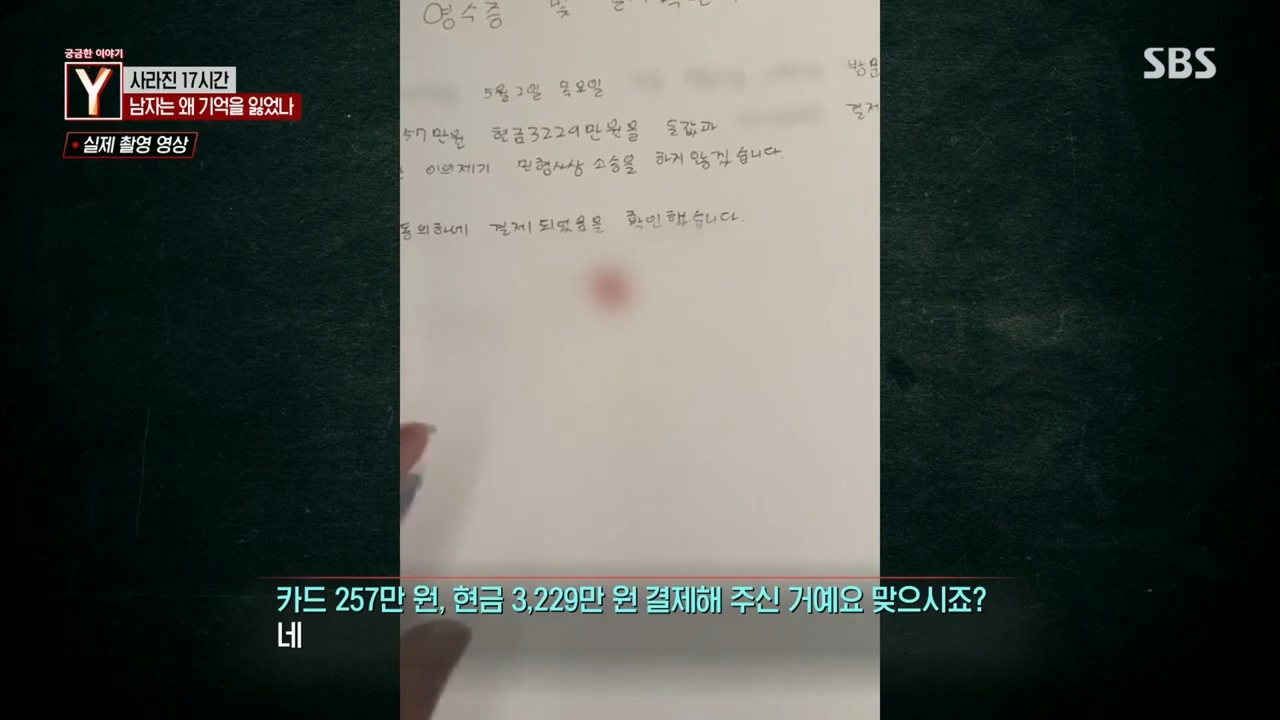 궁금한 이야기
Y
사라진 17시간
남자는 왜 기억을 잃었나
실제 촬영 영상
SBS
영수증 및
방문
5월 2일 목요일
결제
57만원 현금3229만원을 술값과
이의제기 민형사상 소송을 하지 않겠습니다.
동의하에 결제 되었음을 확인했습니다.
카드 257만 원, 현금 3,229만 원 결제해 주신 거예요 맞으시죠?
네